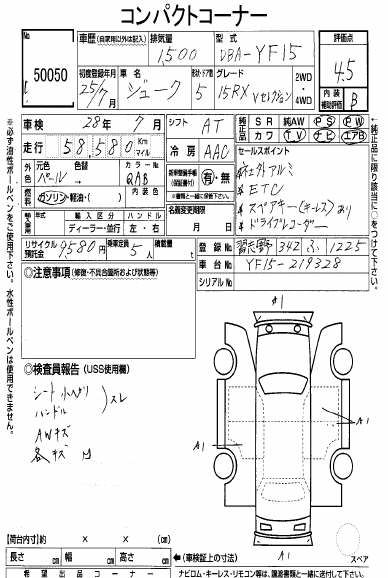 コンパクトコーナー
出品番号 50050
車歴(自家用以外は記入) 排気量 1,500 型式 DBA-YF15 評価点 4.5
初度登録年月 25/7月 車名 ジューク ドア 5 グレード 15RX Vセレクション 2WD・4WD 内装補助評価 B
車検 28年 7月 シフト AT 純正品 SR 純AW PS PW カワ TV ナビ エアB
走行 58,580 Km マイル 冷房 AAC セールスポイント
外色 元色 パール→ 色替 カラーNo. QAB
*社外アルミ
燃料 ガソリン・軽油・( ) 内装色 有・無
*ETC
輸入車 年式 輸入区分 ディーラー・並行 ハンドル 左・右 名義変更期限 月 日
*スペアキー(キーレス)あり
*ドライブレコーダー
リサイクル預託金 9,580円 乗車定員 5人 積載量 t 登録No. 習志野 342 ふ 1225
◎注意事項(修復・不具合箇所および状態等) 車台No. YF15-219328
シリアルNo.
A1
◎検査員報告(USS使用欄)
シート
ハンドル スレ
AWキズ
各キズ
A1
A1
A1
【荷台内寸】 × ×
スペア
長さ cm 幅 cm 高さ cm ←(車検証上の寸法)
希望出品コーナー ナビロム・キーレス・リモコン等は、譲渡書類と一緒に送付して下さい。
※必ず油性ボールペンをご使用下さい。水性ボールペンは使用できません。
純正品に限り該当に○をつけて下さい。